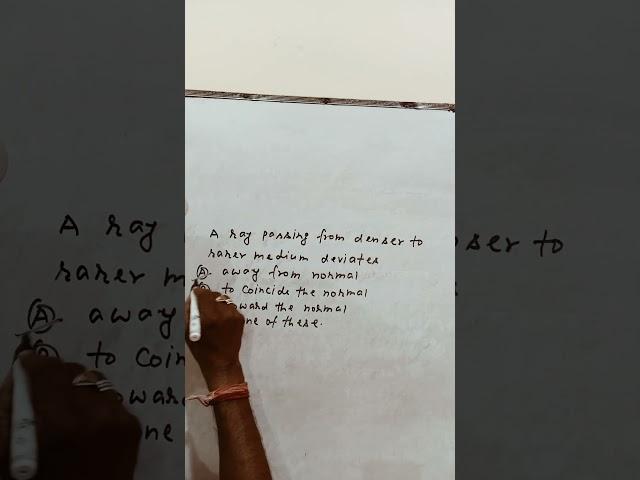 A ray passing from denser to
rarer medium deviates
(A). away from normal
to coincide the normal
the normal
of these.